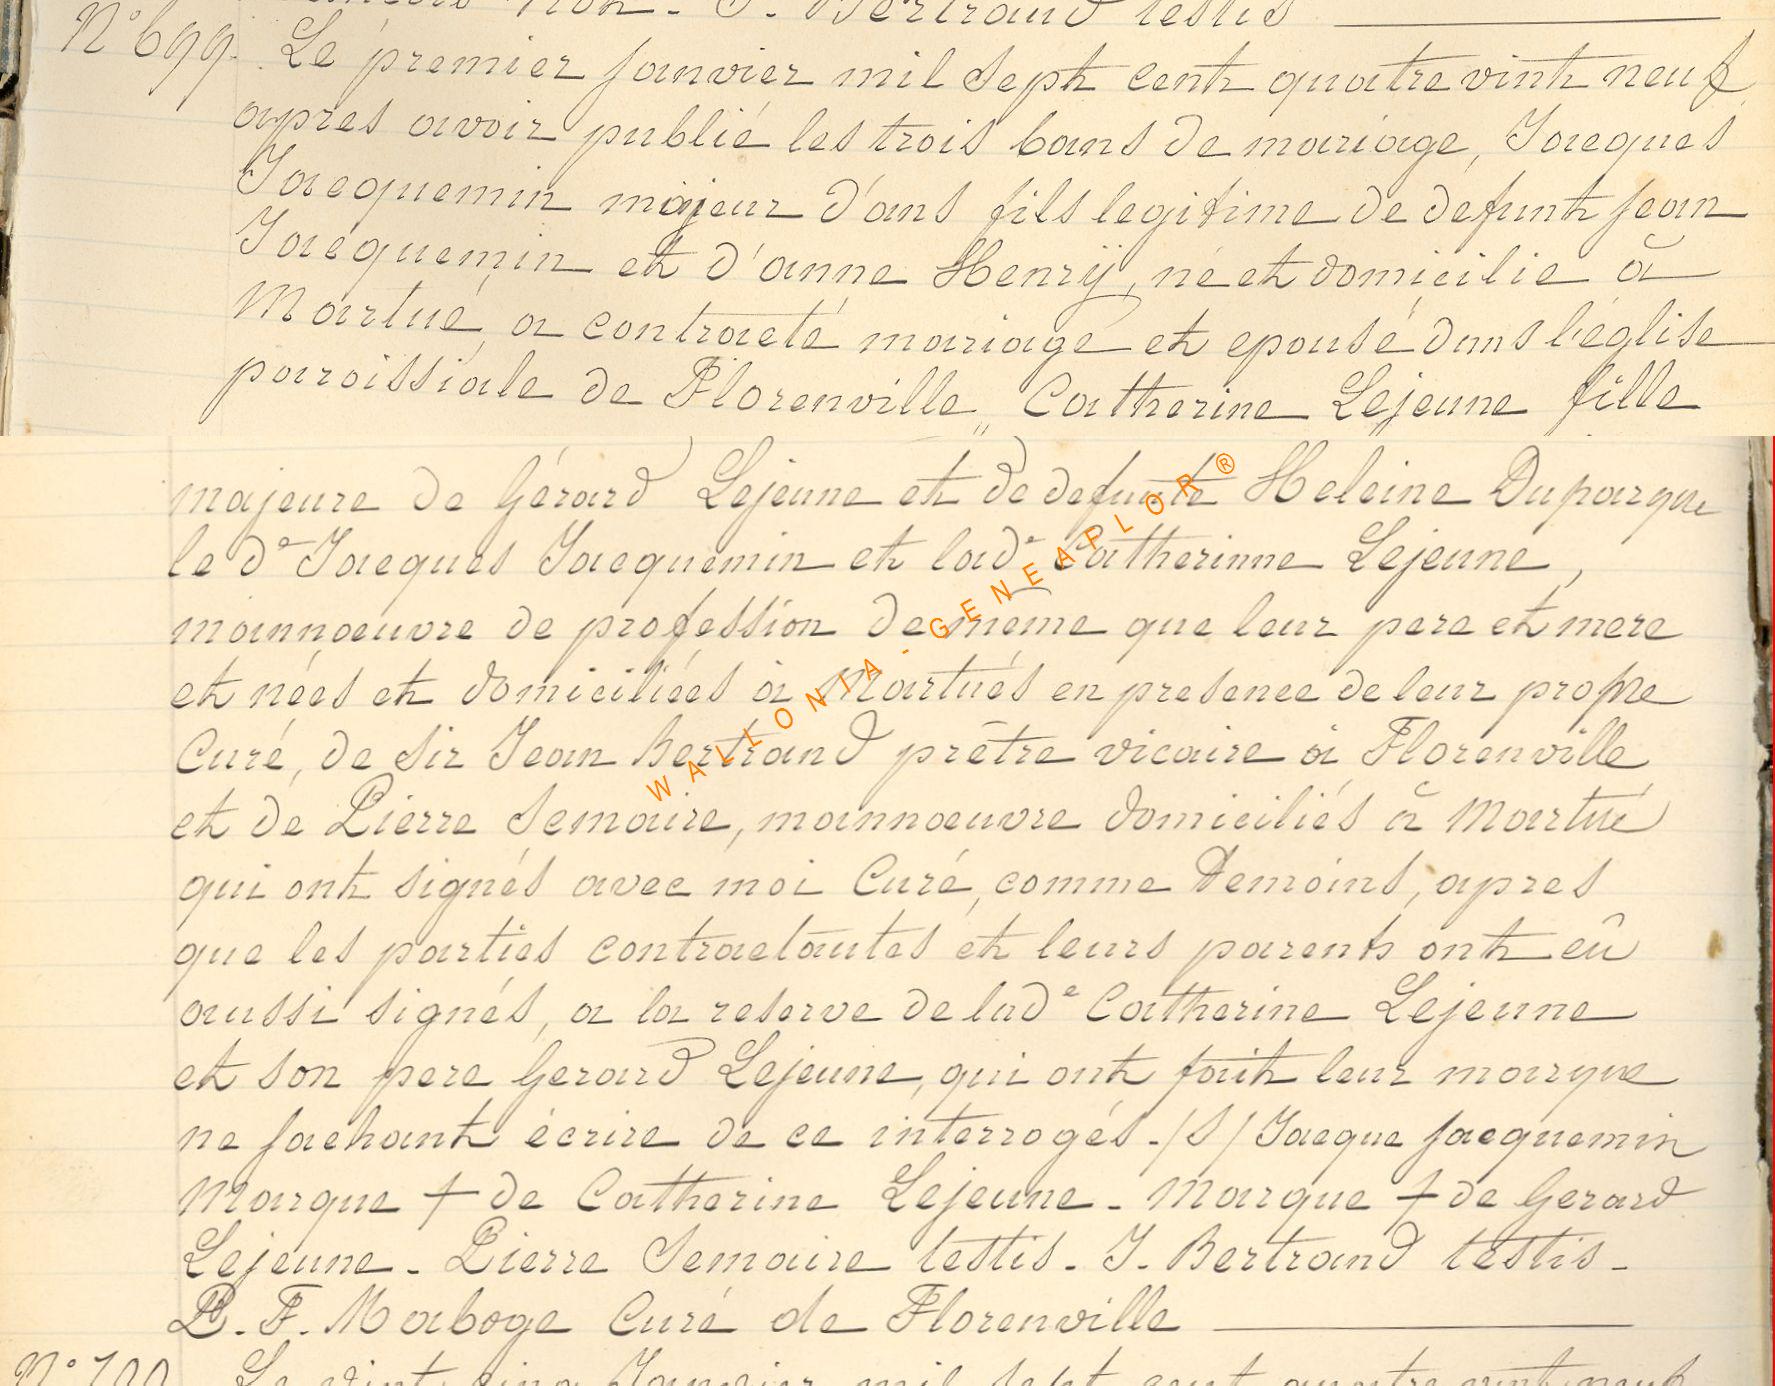 J. Bertrand testis
N° 699. Le premier Janvier mil Sept Cent quatre vint neuf
apres avoir publié les trois bans de mariage, Jacques
Jacquemin majeur d'ans fils legitime de defunt Jean
Jacquemin et d'anne Henrÿ, né et domicilie à
Martué, a contracté mariage et epousé dans l'église
paroissiale de Florenville, Catherine Lejeune fille
majeure de Gérard Lejeune et de defunte Heleine Duparque
le de Jacques Jacquemin et lade Catherinne Lejeune,
mannoeuvre de profession de meme que leur pere et mere
et nées et domiciliées à Martués en presence de leur propre
Curé, de Sir Jean Bertrand prêtre vicaire à Florenville
et de Pierre Semaire, mannoeuvre domiciliés à Martué
qui ont signés avec moi Curé, comme Temoins, apres
que les parties contractantes et leurs parents ont eû
aussi signés, a la reserve de lade Catherine Lejeune
et son pere Gerard Lejeune, qui ont fait leur marque
ne sachant écrire de ce interrogés. /S/ Jacque Jacquemin
Marque + de Catherine Lejeune - Marque + de Gerard
Lejeune - Pierre Semaire testis - J. Bertrand testis -
P. F. Maboge Curé de Florenville
N° 700 Le vint cinq Janvier mil sept cent quatre vint neuf
WALLONIA - GENEAPLOR ®